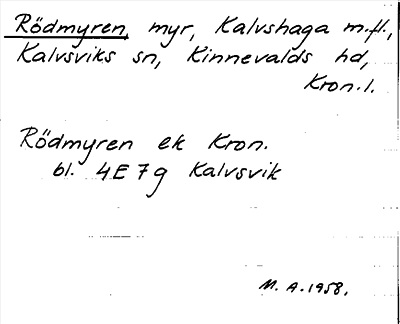 Rödmyren, myr, Kalvshaga m.fl.,
Kalvsviks sn, Kinnevalds hd,
Kron.l.
Rödmyren ek Kron.
bl. 4E7g Kalvsvik
M.A.1958.